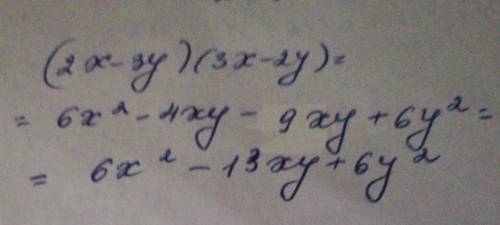 (2x-3y)(3x-2y)=
= 6x² - 4xy - 9xy + 6y² =
= 6x² - 13xy + 6y²